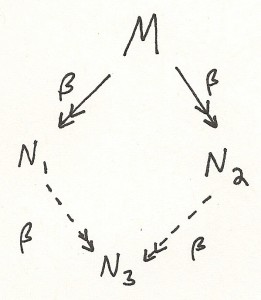 M
β β
N₁ N₂
β β
N₃